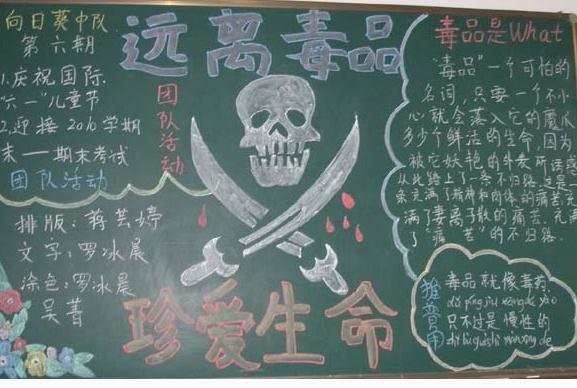 向日葵中队
第六期
1.庆祝国际
"六一"儿童节
2.迎接2016学期
末——期末考试
团队活动
远离毒品
团队活动
排版:蒋芸婷
文字:罗冰晨
涂色:罗冰晨
吴菁
珍爱生命
毒品是What
"毒品"一个可怕的
名词,只要一个不小
心就会落入它的魔爪
多少个鲜活的生命,因为
被它妖艳的外表所诱惑
从此踏上了一条不归路,这是一
条充满了精神和肉体的痛苦,充
满了妻离子散的痛苦,充满
了"痛苦"的不归路
毒品就像毒药
dú pǐn jiù xiàng dú yào
只不过是慢性的